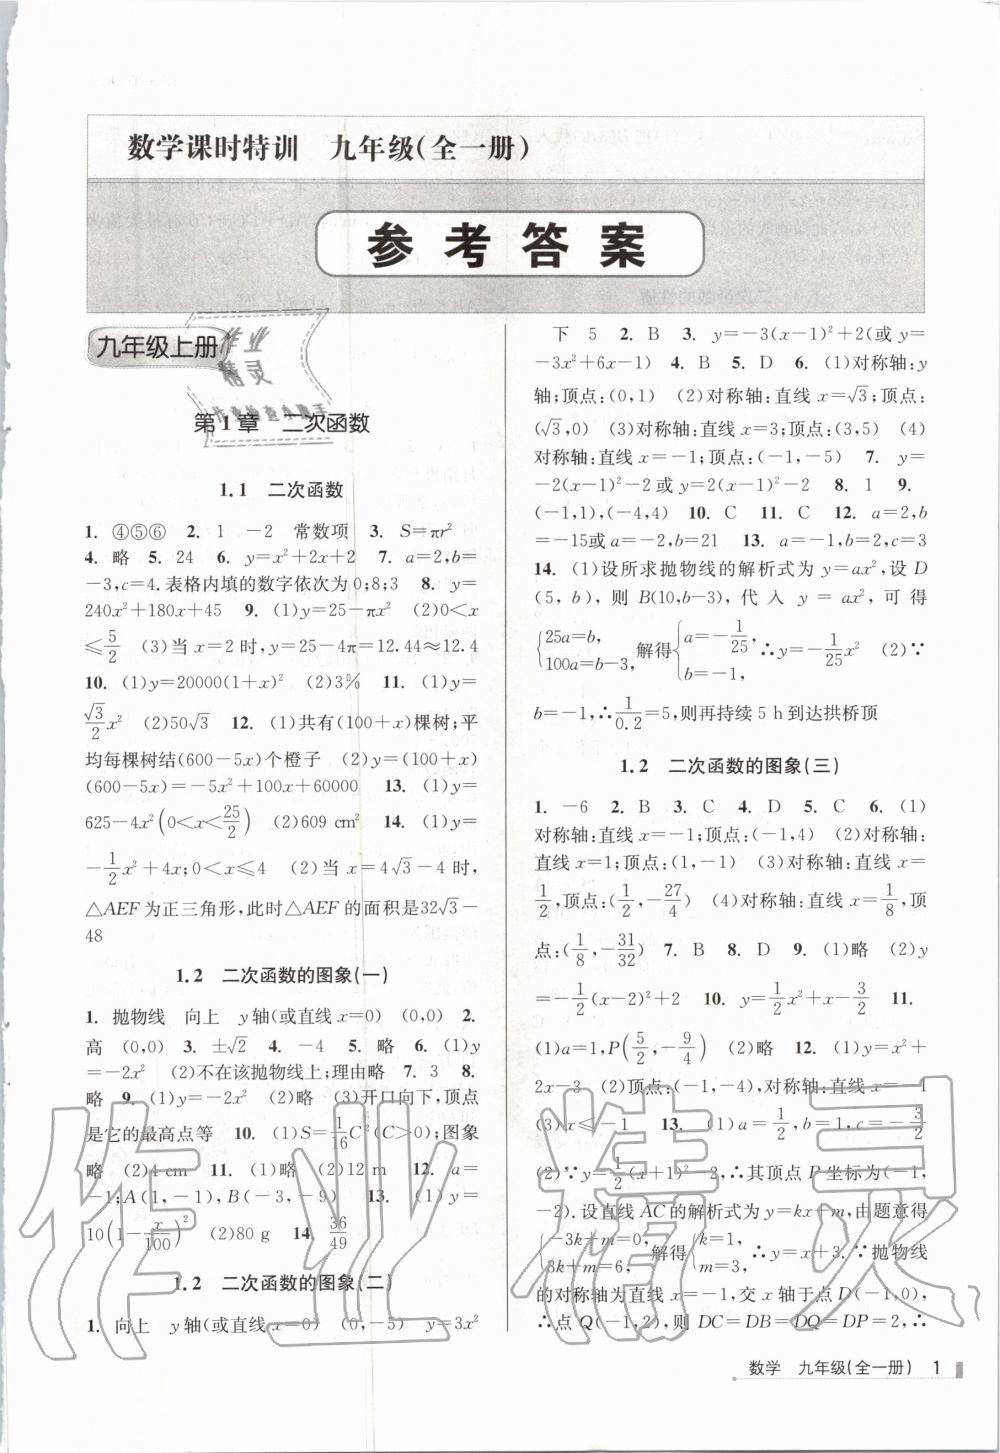 数学课时特训 九年级(全一册)
参考答案
九年级上册
作业
精灵
第1章 二次函数
1.1 二次函数
1. ④⑤⑥ 2. 1 -2 常数项 3. S=πr²
4. 略 5. 24 6. y=x²+2x+2 7. a=2,b=
-3,c=4.表格内填的数字依次为0;8;3 8. y=
240x²+180x+45 9. (1)y=25-πx² (2)0<x
≤5/2 (3)当x=2时,y=25-4π=12.44≈12.4
10. (1)y=20000(1+x)² (2)3% 11. (1)y=
√3/2x² (2)50√3 12. (1)共有(100+x)棵树;平
均每棵树结(600-5x)个橙子 (2)y=(100+x)
(600-5x)=-5x²+100x+60000 13. (1)y=
625-4x²(0<x<25/2) (2)609 cm² 14. (1)y=
-1/2x²+4x;0<x≤4 (2)当x=4√3-4时,
△AEF为正三角形,此时△AEF的面积是32√3-
48
1.2 二次函数的图象(一)
1. 抛物线 向上 y轴(或直线x=0) (0,0) 2.
高 (0,0) 3. ±√2 4. -4 5. 略 6. (1)y
=-2x² (2)不在该抛物线上;理由略 7. 3 8.
略 9. (1)y=-2x² (2)略 (3)开口向下,顶点
是它的最高点等 10. (1)S=1/16C²(C>0);图象
略 (2)4 cm 11. (1)略 (2)12 m 12. a=
-1;A(1,-1),B(-3,-9) 13. (1)y=
10(1-x/100)² (2)80 g 14. 36/49
1.2 二次函数的图象(二)
1. 向上 y轴(或直线x=0) (0,-5) y=3x²
下 5 2. B 3. y=-3(x-1)²+2(或y=
-3x²+6x-1) 4. B 5. D 6. (1)对称轴:y
轴;顶点:(0,1) (2)对称轴:直线x=√3;顶点:
(√3,0) (3)对称轴:直线x=3;顶点:(3,5) (4)
对称轴:直线x=-1;顶点:(-1,-5) 7. y=
-2(x-1)²-2或y=2(x-1)²-2 8. 1 9.
(-1,1),(-4,4) 10. C 11. C 12. a=2,b
=-15或a=-2,b=21 13. a=-1,b=2,c=3
14. (1)设所求抛物线的解析式为y=ax²,设D
(5,b),则B(10,b-3),代入y=ax²,可得
{25a=b,100a=b-3,解得{a=-1/25,b=-1,∴y=-1/25x² (2)∵
b=-1,∴1/0.2=5,则再持续5 h到达拱桥顶
1.2 二次函数的图象(三)
1. -6 2. B 3. C 4. D 5. C 6. (1)
对称轴:直线x=-1;顶点:(-1,4) (2)对称轴:
直线x=1;顶点:(1,-1) (3)对称轴:直线x=
1/2,顶点:(1/2,-27/4) (4)对称轴:直线x=1/8,顶
点:(1/8,-31/32) 7. B 8. D 9. (1)略 (2)y
=-1/2(x-2)²+2 10. y=1/2x²+x-3/2 11.
(1)a=1,P(5/2,-9/4) (2)略 12. (1)y=x²+
2x-3 (2)顶点:(-1,-4),对称轴:直线x=-1
(3)x≤-1 13. (1)a=1/2,b=1,c=-3/2
(2)∵y=1/2(x+1)²-2,∴其顶点P坐标为(-1,
-2).设直线AC的解析式为y=kx+m,由题意得
{-3k+m=0,3k+m=6,解得{k=1,m=3,∴y=x+3.∵抛物线
的对称轴为直线x=-1,交x轴于点D(-1,0),
∴点Q(-1,2),则DC=DB=DQ=DP=2,∴
作业精灵
数学 九年级(全一册) 1